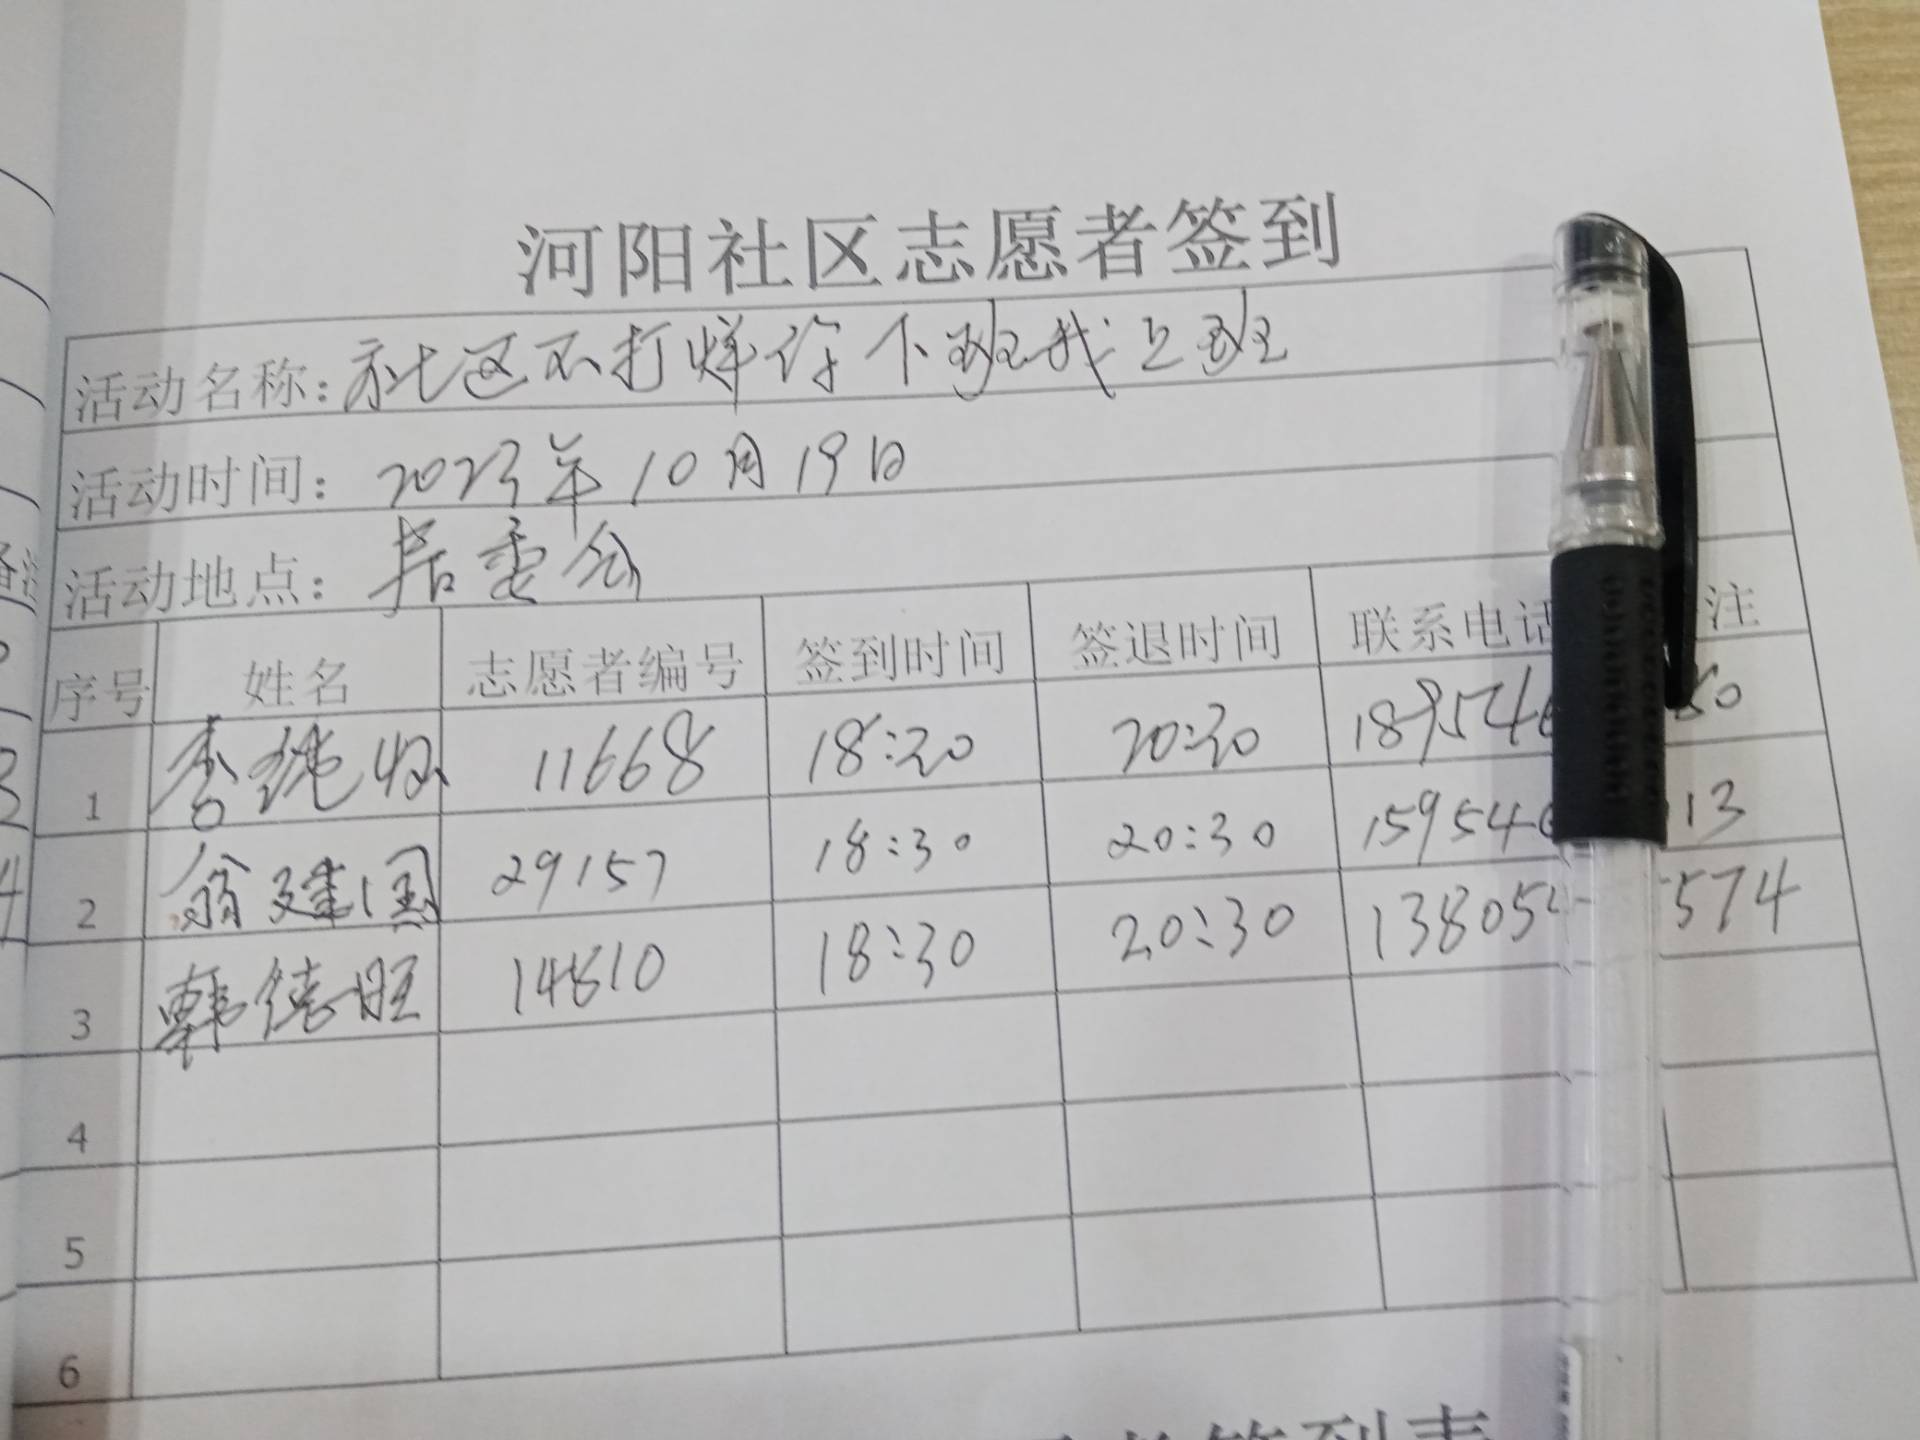 河阳社区志愿者签到
活动名称: 社区不打烊你下班我上班
活动时间: 2023年10月19日
活动地点: 居委会
序号 姓名 志愿者编号 签到时间 签退时间 联系电话 注
1 李 11668 18:20 20:20 189546 80
2 翁建国 29157 18:30 20:30 159546 13
3 韩德旺 14810 18:30 20:30 138054 574
4
5
6
签到表